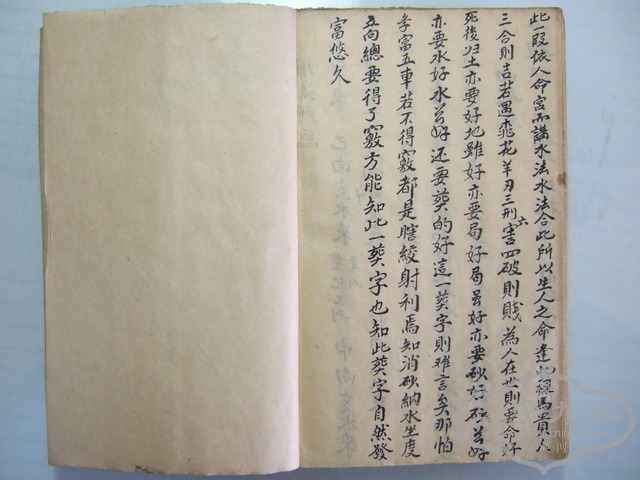 此一段依人命宮而講水法水法合此所以生人之命逢此祿馬貴人
三合則吉若遇桃花羊刃三刑六害四破則賤為人在世則要命好
死後归土亦要好地雖好亦要局好局虽好亦要砂好砂虽好
亦要水好水虽好还要葬的好這一葬字則难言矣那怕
孝富五車若不得竅都是瞎絞射利焉知消砂納水坐度
立向總要得了竅方能知此一葬字也知此葬字自然發
富悠久